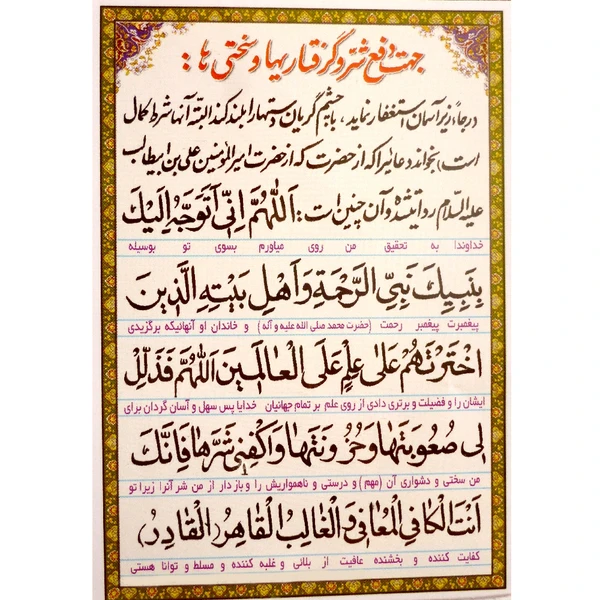 جهت دفع شر و گرفتاریها و سختی ها :
در جا، زیر آسمان استغفار نماید ، با چشم گریان دستها را بلند کند البتّه آنها شرط کمال
است) بخواند دعائیرا که از حضرت که از حضرت امیرالمؤمنین علی بن ابیطالب
علیه السلام روایتشده و آن چنین است : اَللّٰهُمَّ اِنّی اَتَوَجَّهُ اِلَیْكَ
خداوندا به تحقیق من روی میاورم بسوی تو بوسیله
بِنَبِیِّكَ نَبِیِّ الرَّحْمَةِ وَ اَهْلِ بَیْتِهِ الَّذینَ
پیغمبرت پیغمبر رحمت (حضرت محمد صلی الله علیه و آله) و خاندان او آنهائیکه برگزیدی
اخْتَرْتَهُمْ عَلٰی عِلْمٍ عَلَی الْعالَمینَ اَللّٰهُمَّ فَذَلِّلْ
ایشان را و فضیلت و برتری دادی از روی علم بر تمام جهانیان خدایا پس سهل و آسان گردان برای
لی صُعُوبَتَها وَ حُزُونَتَها وَ اکْفِنی شَرَّها فَاِنَّكَ
من سختی و دشواری آن (مهم) و درستی و ناهمواریش را و باز دار از من شر آنرا زیرا تو
اَنْتَ الْکافِی الْمُعافی وَ الْغالِبُ الْقاهِرُ (الْقادِرُ)
کفایت کننده و بخشنده عافیت از بلائی و غلبه کننده و مسلط و توانا هستی